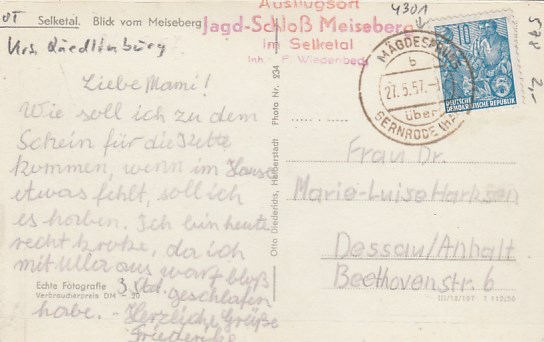 OT
Selketal. Blick vom Meiseberg
Krs. Quedlinburg
Ausflugsort
Jagd-Schloß Meiseberg
im Selketal
Inh. F. Wiedenbeck
4301
MÄGDESPRUNG
b
27.5.57.
über
GERNRODE (HARZ)
10
DEUTSCHE
DEMOKRATISCHE REPUBLIK
Liebe Mami!
Wie soll ich zu dem
Schein für die Kette
kommen, wenn im Hause
etwas fehlt, soll ich
es haben. Ich bin heute
recht, da ich
mit Ulla aus bloß
3 Std. geschlafen
habe. - Herzliche Grüße
Friederike
Echte Fotografie
Verbraucherpreis DM -.20
Otto Diederichs, Halberstadt Photo Nr. 234
Frau Dr.
Marie-Luise Harksen
Dessau/Anhalt
Beethovenstr. 6